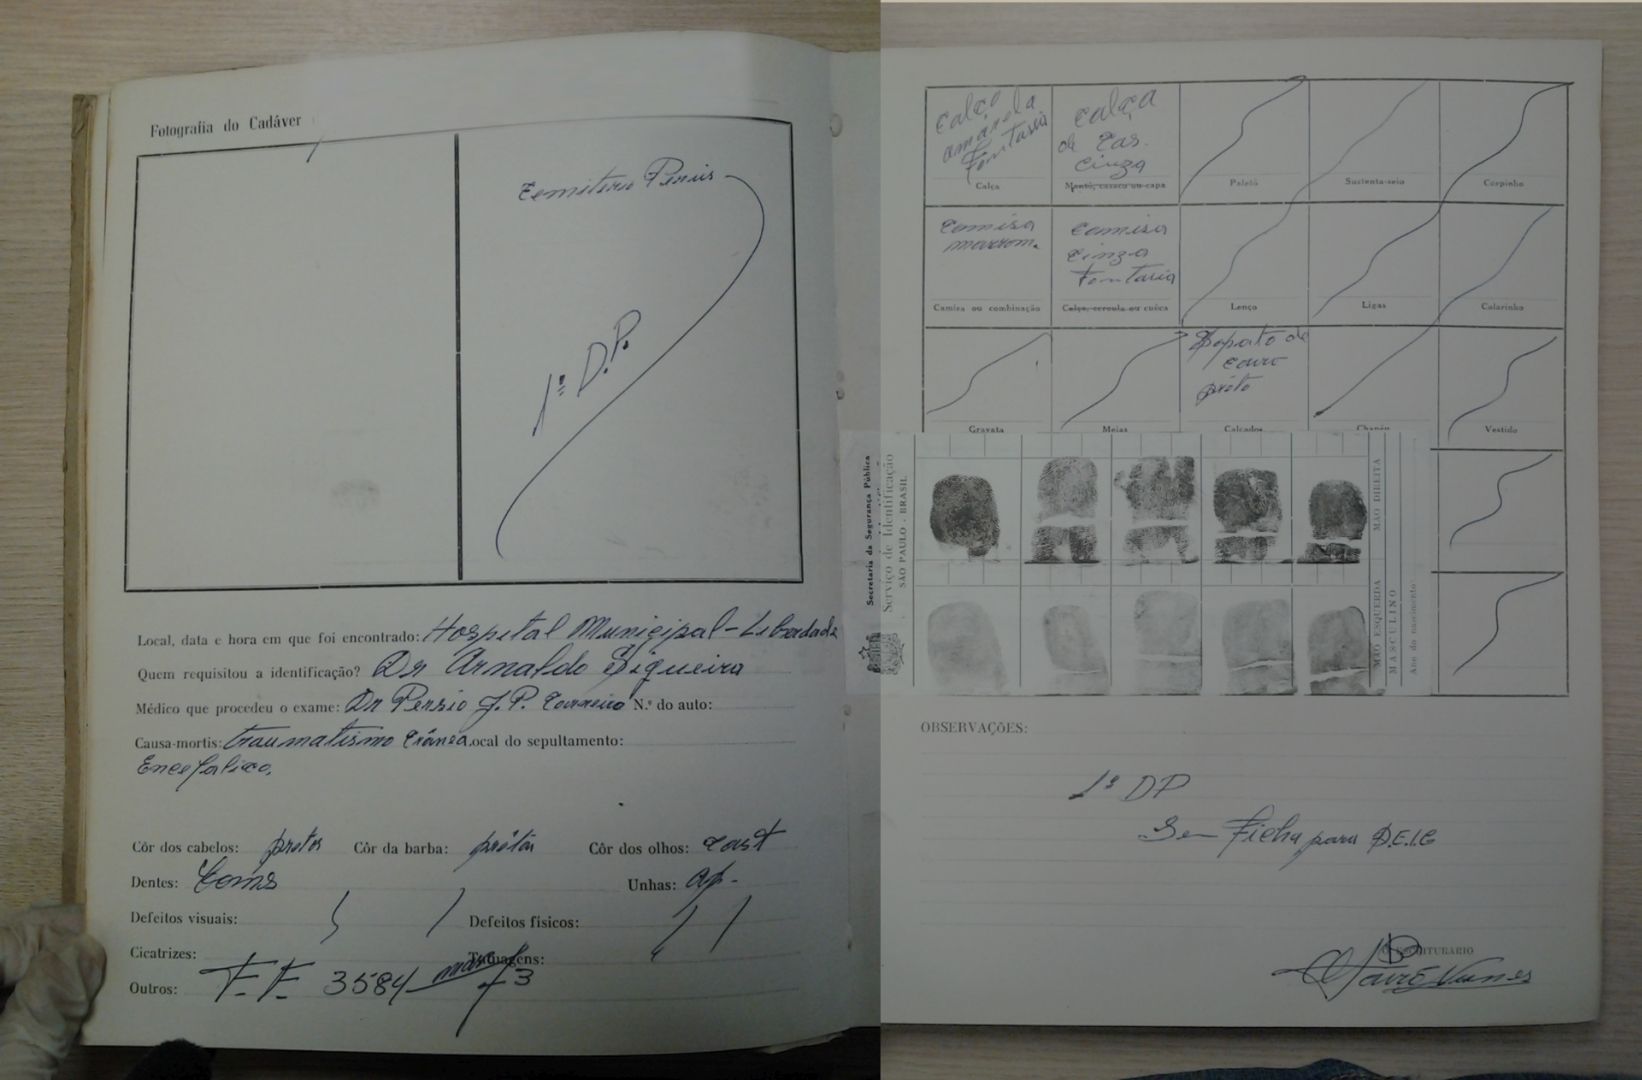 Fotografia do Cadáver
Cemitério Perus
1º D.P.
Local, data e hora em que foi encontrado: Hospital Municipal - Liberdade
Quem requisitou a identificação? Dr Arnaldo Siqueira
Médico que procedeu o exame: Dr Persio J. P. Carneiro N.º do auto:
Causa-mortis: traumatismo Crânea Local do sepultamento:
Encefalico.
Côr dos cabelos: pretos Côr da barba: prêta Côr dos olhos: Cast
Dentes: Coms Unhas: ap.
Defeitos visuais: Defeitos físicos:
Cicatrizes: Tatuagens:
Outros: F.F. 3584 73
calça amarela Fantasia
Calça
calça de Cas. cinza
Mantô, casaco ou capa
Paletó
Sustenta-seio
Corpinho
Camisa marrom.
Camisa ou combinação
Camisa cinza Fantasia
Calça, ceroula ou cuéca
Lenço
Ligas
Colarinho
Gravata
Meias
Sapato de couro prêto
Calçados
Chapéu
Vestido
Secretaria da Segurança Pública
Serviço de Identificação
SÃO PAULO - BRASIL
MÃO DIREITA
MÃO ESQUERDA
MASCULINO
Ano do nascimento:
OBSERVAÇÕES:
1º DP
Sem Ficha para D.E.I.C
ESCRITURARIO